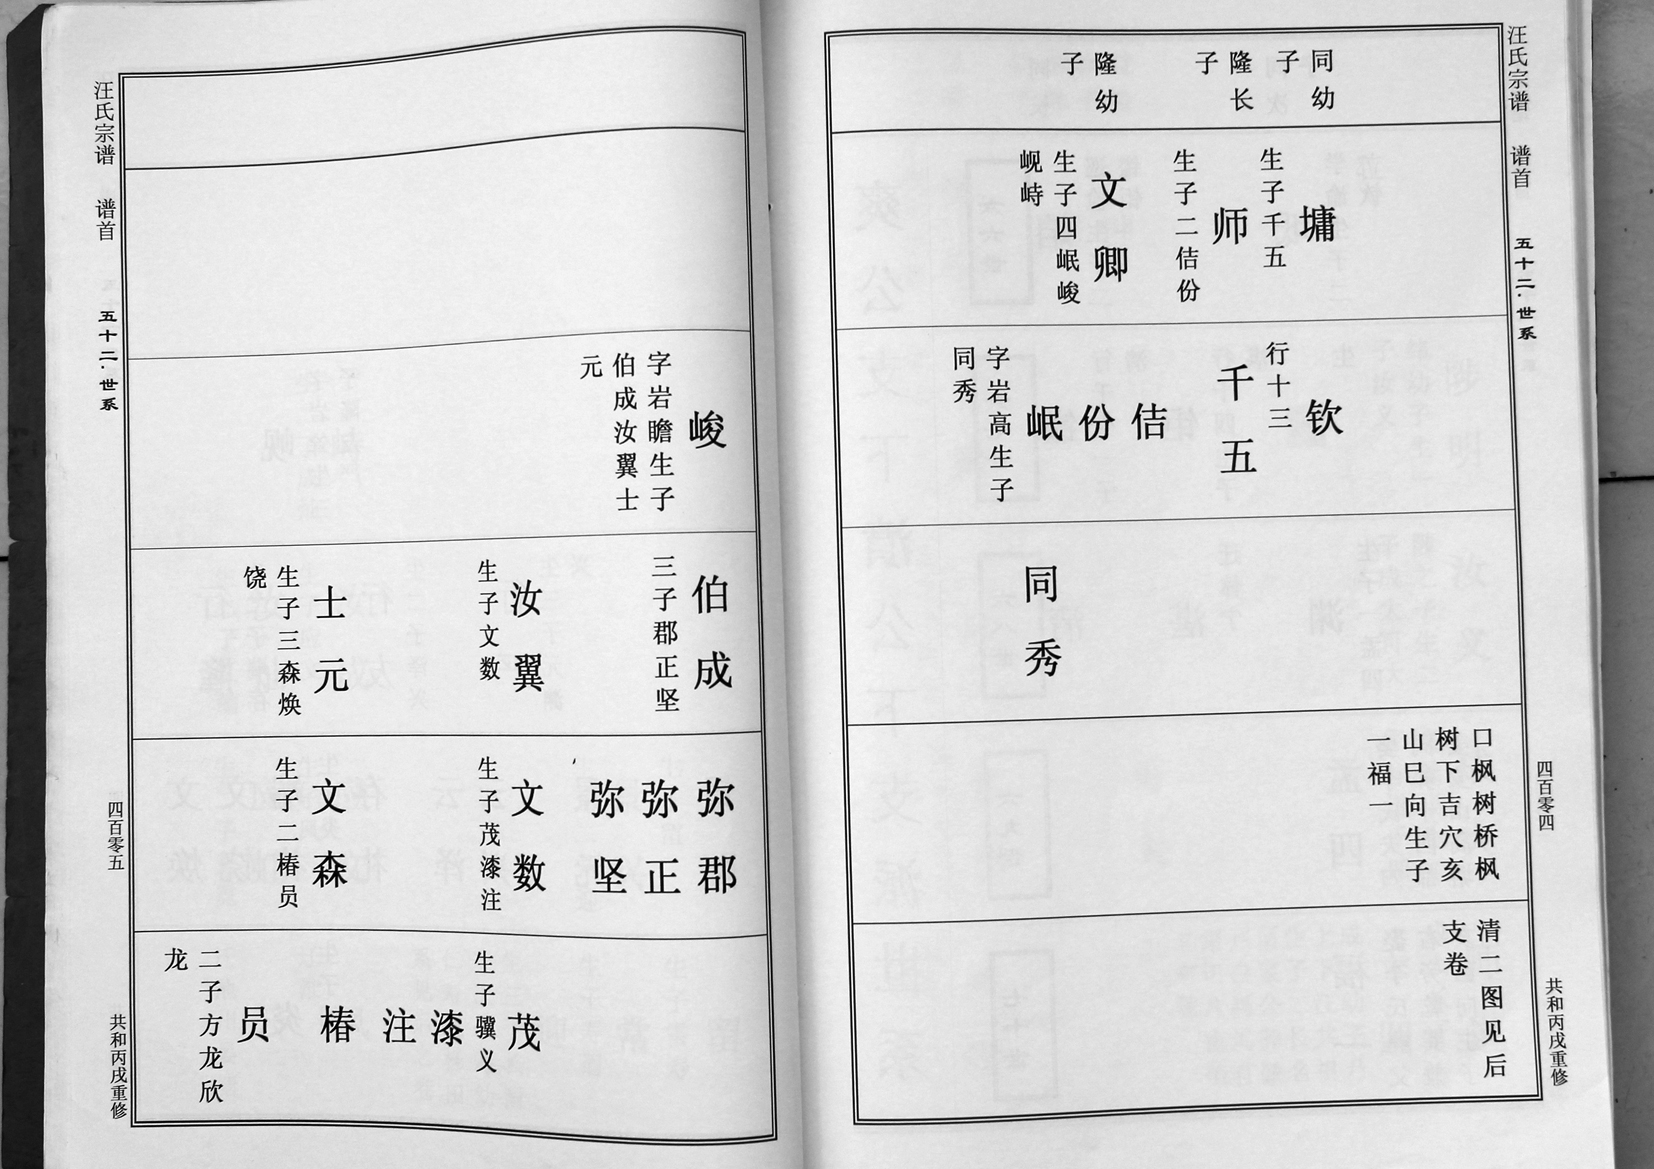 汪氏宗谱 谱首 五十二·世系 四百零四 共和丙戌重修
同幼
子
隆长
子
隆幼
子
墉
生子千五
师
生子二佶份
文卿
生子四岷峻
岘峙
钦
行十三
千五
佶
份
岷
字岩高生子
同秀
同秀
口枫树桥枫
树下吉穴亥
山巳向生子
一福一
清二图见后
支卷
峻
字岩瞻生子
伯成汝翼士
元
伯成
三子郡正坚
汝翼
生子文数
士元
生子三森焕
饶
弥郡
弥正
弥坚
文数
生子茂漆注
文森
生子二椿员
茂
生子骥义
漆
注
椿
员
二子方龙欣
龙
汪氏宗谱 谱首 五十二·世系 四百零五 共和丙戌重修